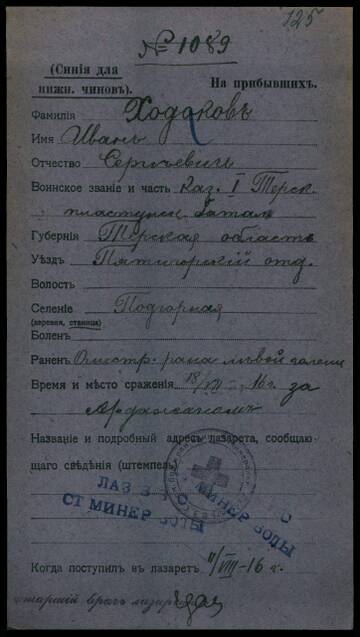 125
№ 1089
(Синія для нижн. чиновъ).
На прибывшихъ.
Фамилія Ходаковъ
Имя Иванъ
Отчество Сергѣевичъ
Воинское званіе и часть Каз. I Терск.
пластунск. батал.
Губернія Терская область
Уѣздъ Пятигорскій отд.
Волость
Селеніе Подгорная
(деревня, станица)
Боленъ
Раненъ Огнестр. рана лѣвой голени
Время и мѣсто сраженія 18/VII - 16 г. за
Названіе и подробный адресъ лазарета, сообщаю-
щаго свѣдѣнія (штемпель)
ЛАЗ
МИНЕР ВОДЫ
СТ МИНЕР ВОДЫ
Когда поступилъ въ лазаретъ 11/VIII - 16 г.
старшій врачъ лазарета